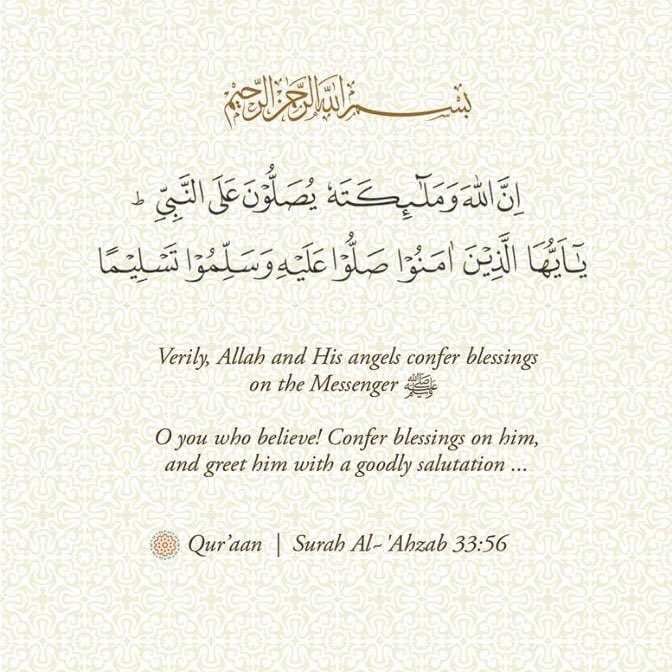 بسم الله الرحمن الرحيم
اِنَّ اللّٰهَ وَمَلٰٓئِكَتَهٗ يُصَلُّوْنَ عَلَى النَّبِيِّ ؕ
يٰٓاَيُّهَا الَّذِيْنَ اٰمَنُوْا صَلُّوْا عَلَيْهِ وَسَلِّمُوْا تَسْلِيْمًا
Verily, Allah and His angels confer blessings
on the Messenger ﷺ
O you who believe! Confer blessings on him,
and greet him with a goodly salutation ...
Qur’aan | Surah Al-'Ahzab 33:56